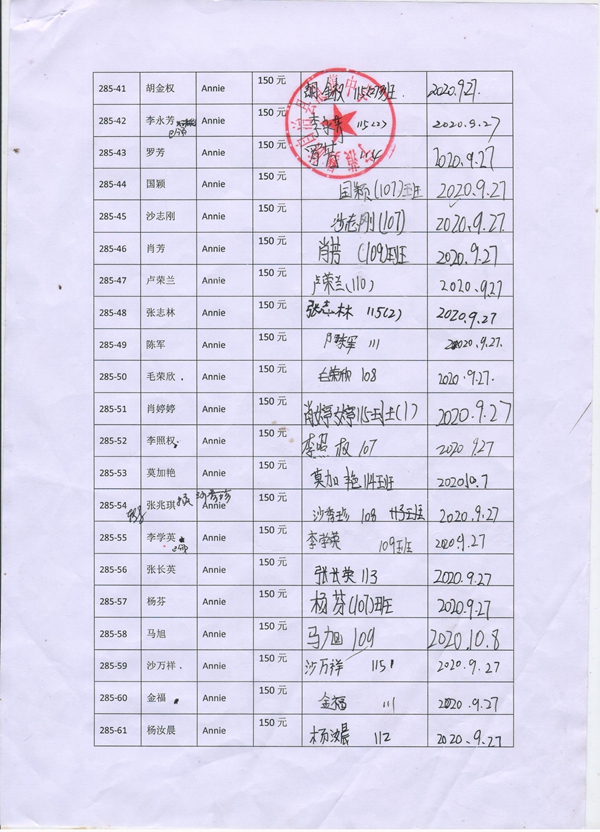 285-41 胡金权 Annie 150 元 胡金权 115(2)班 2020.9.27.
285-42 李永芳 Annie 150 元 李永芳 115(2) 2020.9.27
285-43 罗芳 Annie 150 元 罗芳 2020.9.27
285-44 国颖 Annie 150 元 国颖(107)班 2020.9.27
285-45 沙志刚 Annie 150 元 沙志刚(107) 2020.9.27
285-46 肖芳 Annie 150 元 肖芳 (109)班 2020.9.27
285-47 卢荣兰 Annie 150 元 卢荣兰(110) 2020.9.27
285-48 张志林 Annie 150 元 张志林 115(2) 2020.9.27
285-49 陈军 Annie 150 元 111 2020.9.27.
285-50 毛荣欣 Annie 150 元 毛荣欣 108 2020.9.27.
285-51 肖婷婷 Annie 150 元 肖婷婷115班(1) 2020.9.27
285-52 李照权 Annie 150 元 李照权 107 2020 9.27
285-53 莫加艳 Annie 150 元 莫加艳114班
285-54 张兆琪 Annie 150 元 108 2020.9.27
285-55 李学英 Annie 150 元 李学英 109班 2020.9.27
285-56 张长英 Annie 150 元 张长英 113 2020.9.27
285-57 杨芬 Annie 150 元 杨芬(107)班 2020.9.27
285-58 马旭 Annie 150 元 马旭 109 2020.10.8
285-59 沙万祥 Annie 150 元 沙万祥 1151 2020.9.27
285-60 金福 Annie 150 元 金福 111 2020.9.27
285-61 杨汝晨 Annie 150 元 杨汝晨 112 2020.9.27